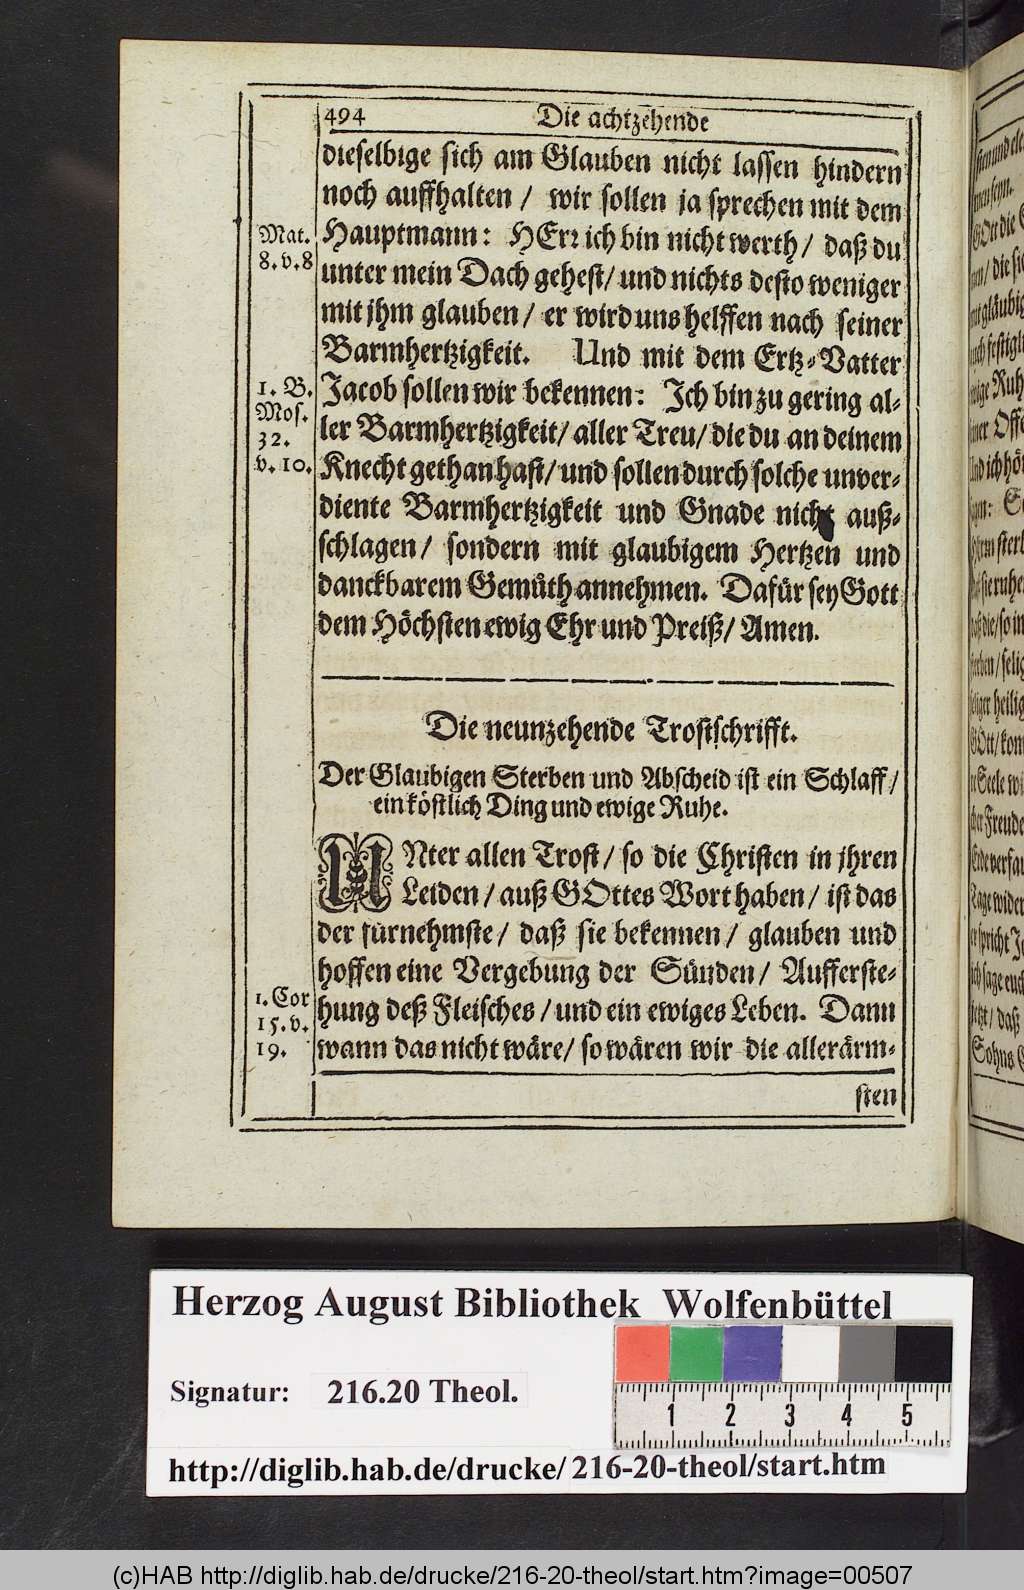 494 Die achtzehende
dieselbige sich am Glauben nicht lassen hindern
noch auffhalten / wir sollen ja sprechen mit dem
Mat.
8.v.8
Hauptmann: HErr ich bin nicht werth / daß du
unter mein Dach gehest / und nichts desto weniger
mit jhm glauben / er wird uns helffen nach seiner
Barmhertzigkeit. Und mit dem Ertz-Vatter
1. B.
Mos.
32.
v.10.
Jacob sollen wir bekennen: Ich bin zu gering al-
ler Barmhertzigkeit / aller Treu / die du an deinem
Knecht gethan hast / und sollen durch solche unver-
diente Barmhertzigkeit und Gnade nicht auß-
schlagen / sondern mit glaubigem Hertzen und
danckbarem Gemüth annehmen. Dafür sey Gott
dem Höchsten ewig Ehr und Preiß / Amen.
Die neunzehende Trostschrifft.
Der Glaubigen Sterben und Abscheid ist ein Schlaff /
ein köstlich Ding und ewige Ruhe.
UNter allen Trost / so die Christen in jhren
Leiden / auß GOttes Wort haben / ist das
der fürnehmste / daß sie bekennen / glauben und
hoffen eine Vergebung der Sünden / Aufferste-
1. Cor
15.v.
19.
hung deß Fleisches / und ein ewiges Leben. Dann
wann das nicht wäre / so wären wir die allerärm-
sten
Herzog August Bibliothek Wolfenbüttel
Signatur: 216.20 Theol.
1 2 3 4 5
http://diglib.hab.de/drucke/216-20-theol/start.htm
(c)HAB http://diglib.hab.de/drucke/216-20-theol/start.htm?image=00507